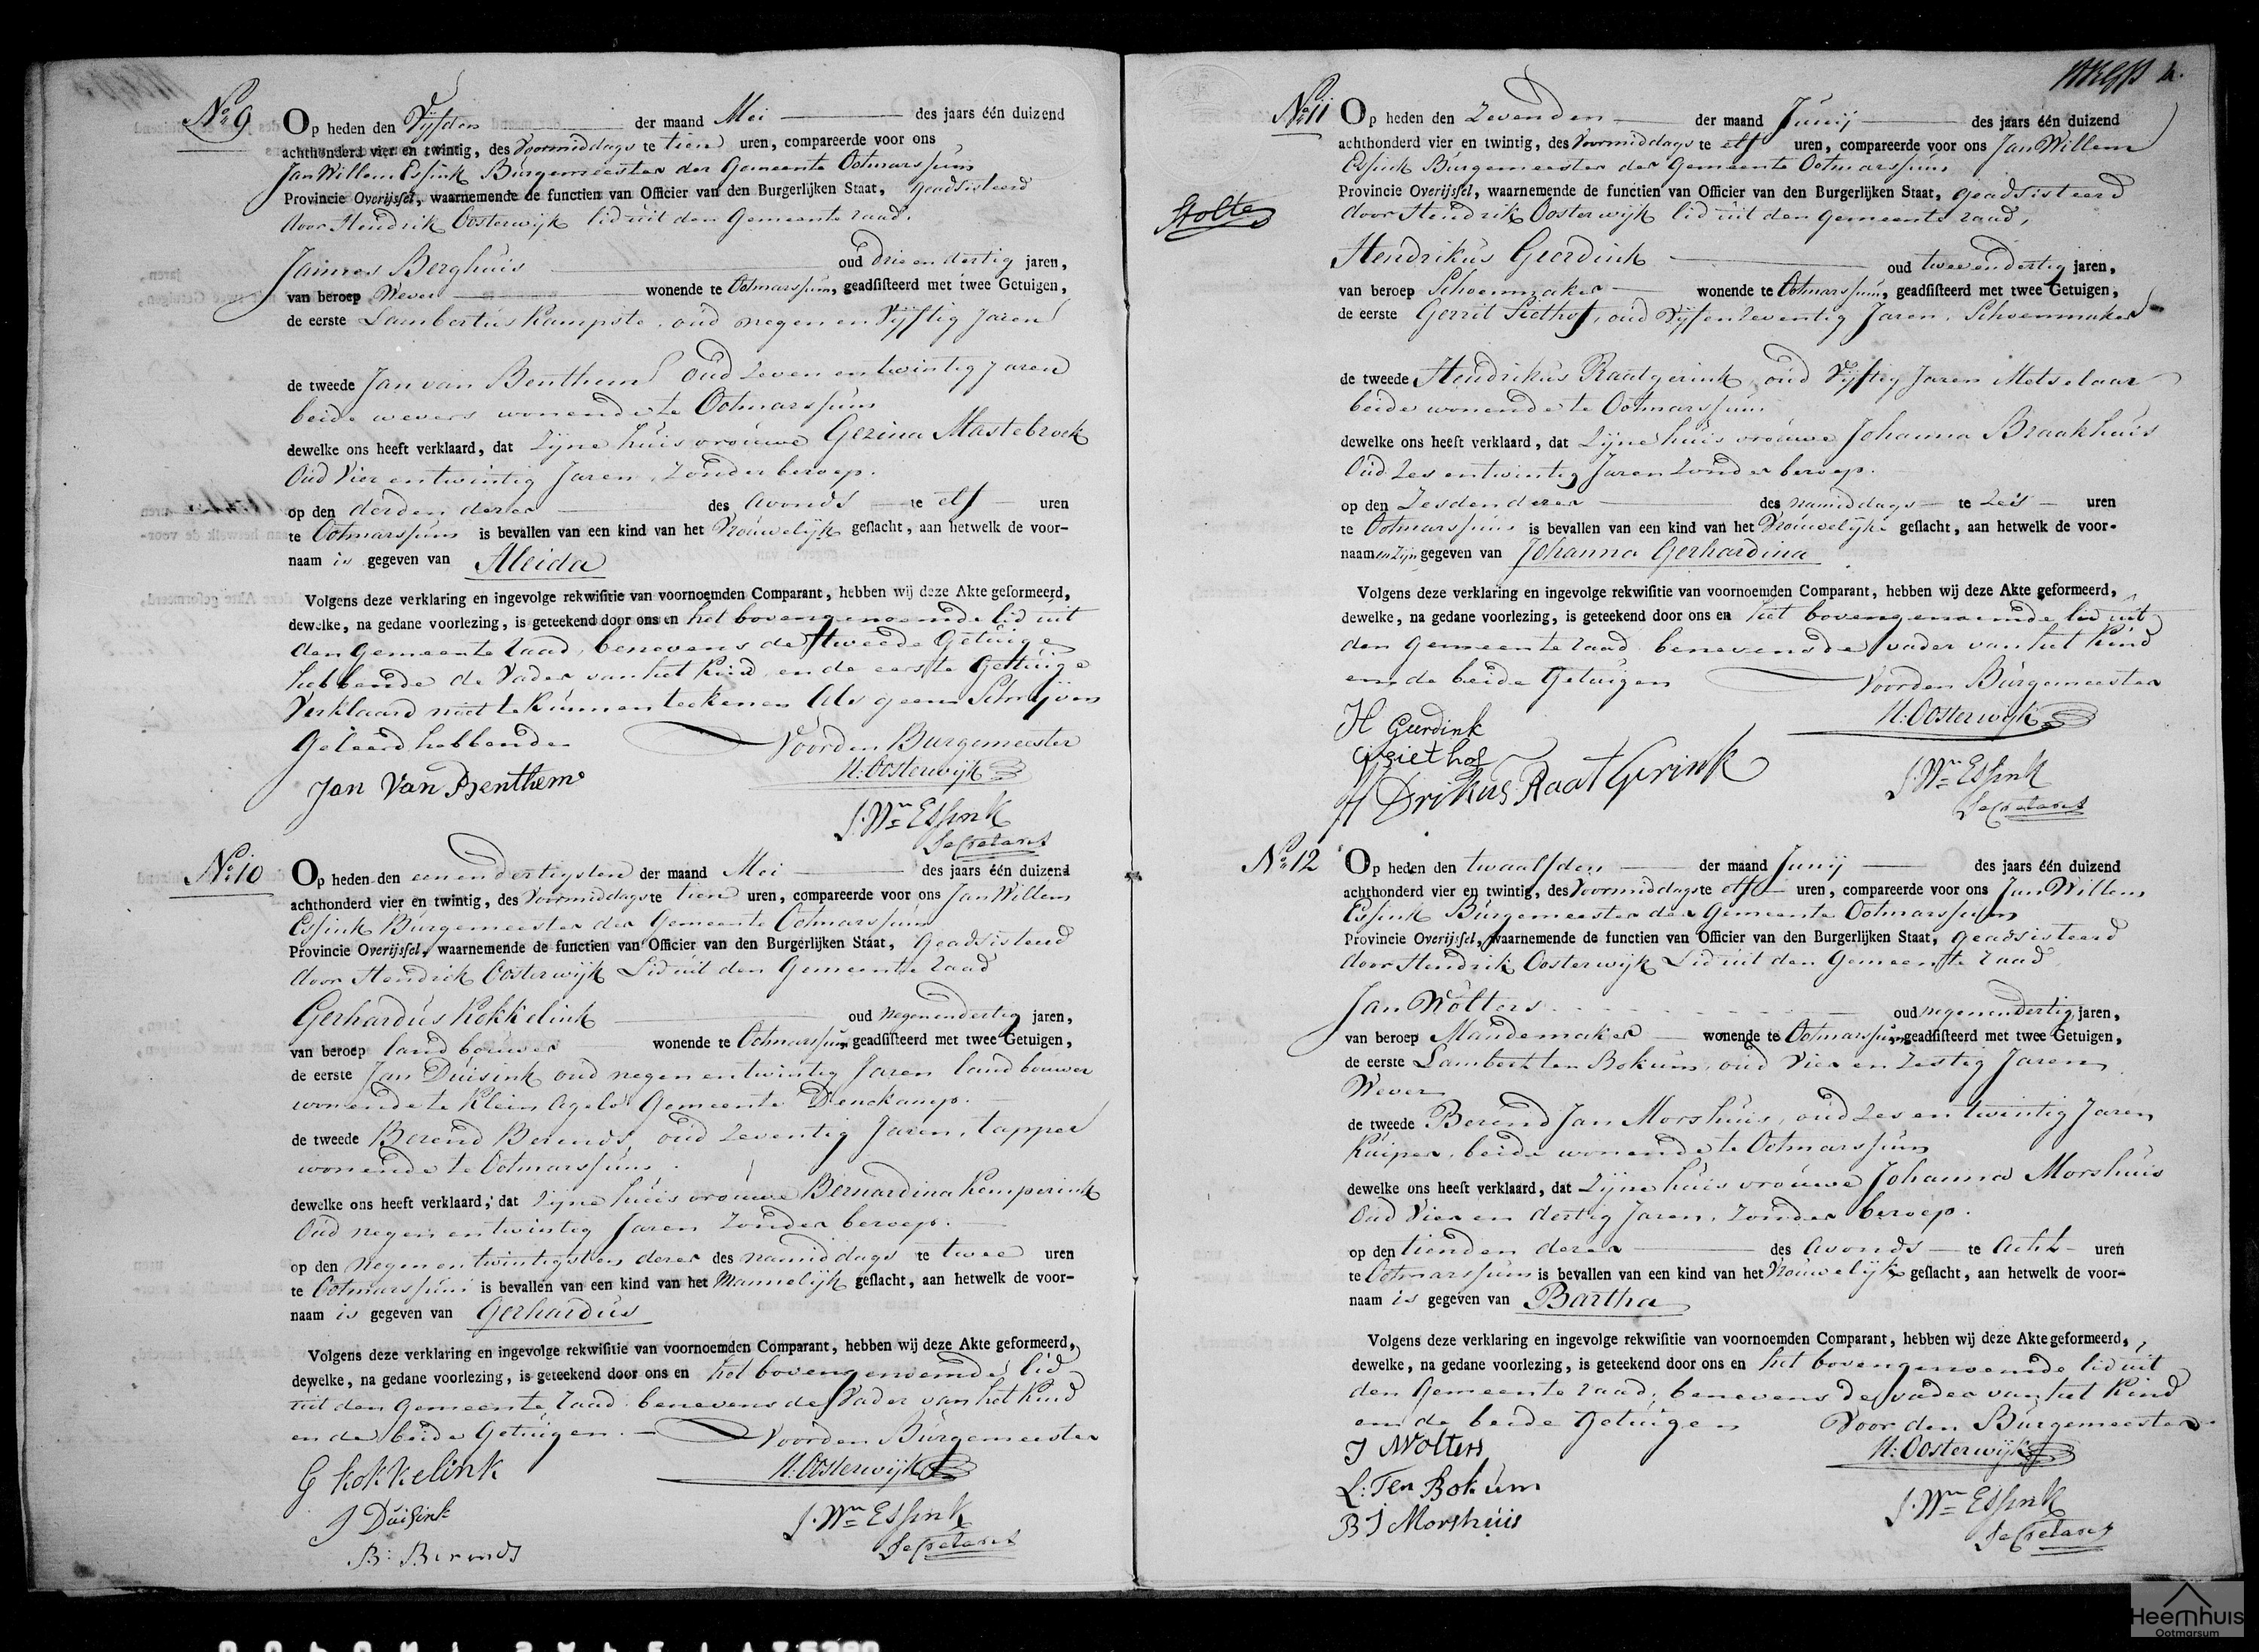 No 9
Op heden den Vijfden der maand Mei des jaars één duizend
achthonderd vier en twintig, des Voormiddags te tien uren, compareerde voor ons
Jan Willem Essink Burgemeester der Gemeente Ootmarssum
Provincie Overijssel, waarnemende de functien van Officier van den Burgerlijken Staat, geadsisteerd
door Hendrik Oosterwijk lid uit den Gemeente raad,
Jannes Berghuis oud drie en dertig jaren,
van beroep Wever wonende te Ootmarssum, geadsisteerd met twee Getuigen,
de eerste Lambertus Kampste, oud negen en Vijftig Jaren
de tweede Jan van Benthem oud Zeven en twintig Jaren
beide wevers wonende te Ootmarssum
dewelke ons heeft verklaard, dat Zijne huisvrouwe Gezina Mastebroek
Oud Vier en twintig Jaren, Zonder beroep.
op den derden dezer des avonds te elf uren
te Ootmarssum is bevallen van een kind van het Vrouwelijk geslacht, aan hetwelk de voor-
naam is gegeven van Aleida
Volgens deze verklaring en ingevolge rekwisitie van voornoemden Comparant, hebben wij deze Akte geformeerd,
dewelke, na gedane voorlezing, is geteekend door ons en het bovengenoemde lid uit
den Gemeente raad, benevens de tweede Getuige
hebbende de Vader van het Kind en de eerste Getuige
Verklaard niet te kunnen teekenen als geen Schrijven
Geleerd hebbende Voor den Burgemeester
H: Oosterwijk
Jan Van Benthem
J. Wm Essink
Secretaris
No 10
Op heden den een en dertigsten der maand Mei des jaars één duizend
achthonderd vier en twintig, des Voormiddags te tien uren, compareerde voor ons Jan Willem
Essink Burgemeester der Gemeente Ootmarssum
Provincie Overijssel, waarnemende de functien van Officier van den Burgerlijken Staat, Geadsisteerd
door Hendrik Oosterwijk Lid uit den Gemeente raad
Gerhardus Kokkelink oud negen en dertig jaren,
van beroep landbouwer wonende te Ootmarssum, geadsisteerd met twee Getuigen,
de eerste Jan Duisink oud negen en twintig Jaren landbouwer
wonende te Klein Agelo Gemeente Denekamp.
de tweede Berend Berends, oud Zeventig Jaren, tapper
wonende te Ootmarssum
dewelke ons heeft verklaard, dat Zijne huisvrouwe Bernardina Kemperink
Oud negen en twintig Jaren Zonder beroep.
op den negen en twintigsten dezer des namiddags te twee uren
te Ootmarssum is bevallen van een kind van het Mannelijk geslacht, aan hetwelk de voor-
naam is gegeven van Gerhardus
Volgens deze verklaring en ingevolge rekwisitie van voornoemden Comparant, hebben wij deze Akte geformeerd,
dewelke, na gedane voorlezing, is geteekend door ons en het bovengenoemde lid
uit den Gemeente raad benevens de Vader van het Kind
en de beide Getuigen. Voor den Burgemeester
G Kokkelink
H: Oosterwijk
J Duisink
J. Wm Essink
B: Berends
Secretaris
No 11
Op heden den Zevenden der maand Junij des jaars één duizend
achthonderd vier en twintig, des Voormiddags te elf uren, compareerde voor ons Jan Willem
Essink Burgemeester der Gemeente Ootmarssum
Provincie Overijssel, waarnemende de functien van Officier van den Burgerlijken Staat, geadsisteerd
Stolte
door Hendrik Oosterwijk lid uit den gemeente raad,
Hendrikus Geerdink oud twee en dertig jaren,
van beroep Schoenmaker wonende te Ootmarssum, geadsisteerd met twee Getuigen,
de eerste Gerrit Siethof, oud Vijf en Zeventig Jaren, Schoenmaker
de tweede Hendrikus Raatgerink, oud Vijftig Jaren Metselaar
beide wonende te Ootmarssum
dewelke ons heeft verklaard, dat Zijne huisvrouwe Johanna Braakhuis
Oud Zes en twintig Jaren Zonder beroep.
op den Zesden dezer des namiddags te Zes uren
te Ootmarssum is bevallen van een kind van het Vrouwelijk geslacht, aan hetwelk de voor-
naamen zijn gegeven van Johanna Gerhardina
Volgens deze verklaring en ingevolge rekwisitie van voornoemden Comparant, hebben wij deze Akte geformeerd,
dewelke, na gedane voorlezing, is geteekend door ons en het bovengenoemde lid uit
den gemeente raad benevens de vader van het Kind
en de beide Getuigen Voor den Burgemeester
H Geerdink
H: Oosterwijk
G Siethof
HDrikus RaatGerink
J. Wm Essink
Secretaris
No 12
Op heden den twaalfden der maand Junij des jaars één duizend
achthonderd vier en twintig, des Voormiddags te elf uren, compareerde voor ons Jan Willem
Essink Burgemeester der Gemeente Ootmarssum
Provincie Overijssel, waarnemende de functien van Officier van den Burgerlijken Staat, geadsisteerd
door Hendrik Oosterwijk Lid uit den Gemeente raad
Jan Wolters oud negen en dertig jaren,
van beroep Mandemaker wonende te Ootmarssum, geadsisteerd met twee Getuigen,
de eerste Lambert ten Bokum, oud Vier en Zestig Jaren
Wever
de tweede Berend Jan Morshuis, oud Zes en twintig Jaren
Kuiper, beide wonende te Ootmarssum
dewelke ons heeft verklaard, dat Zijne huisvrouwe Johanna Morshuis
Oud Vier en dertig Jaren, Zonder beroep.
op den tienden dezer des avonds te Acht uren
te Ootmarssum is bevallen van een kind van het Vrouwelijk geslacht, aan hetwelk de voor-
naam is gegeven van Bartha
Volgens deze verklaring en ingevolge rekwisitie van voornoemden Comparant, hebben wij deze Akte geformeerd,
dewelke, na gedane voorlezing, is geteekend door ons en het bovengenoemde lid uit
den Gemeente raad, benevens de vader van het Kind
en de beide Getuigen Voor den Burgemeester
J Wolters
H: Oosterwijk
L: Ten Bokum
J. Wm Essink
B J Morshuis
Secretaris
Heemhuis
Ootmarsum